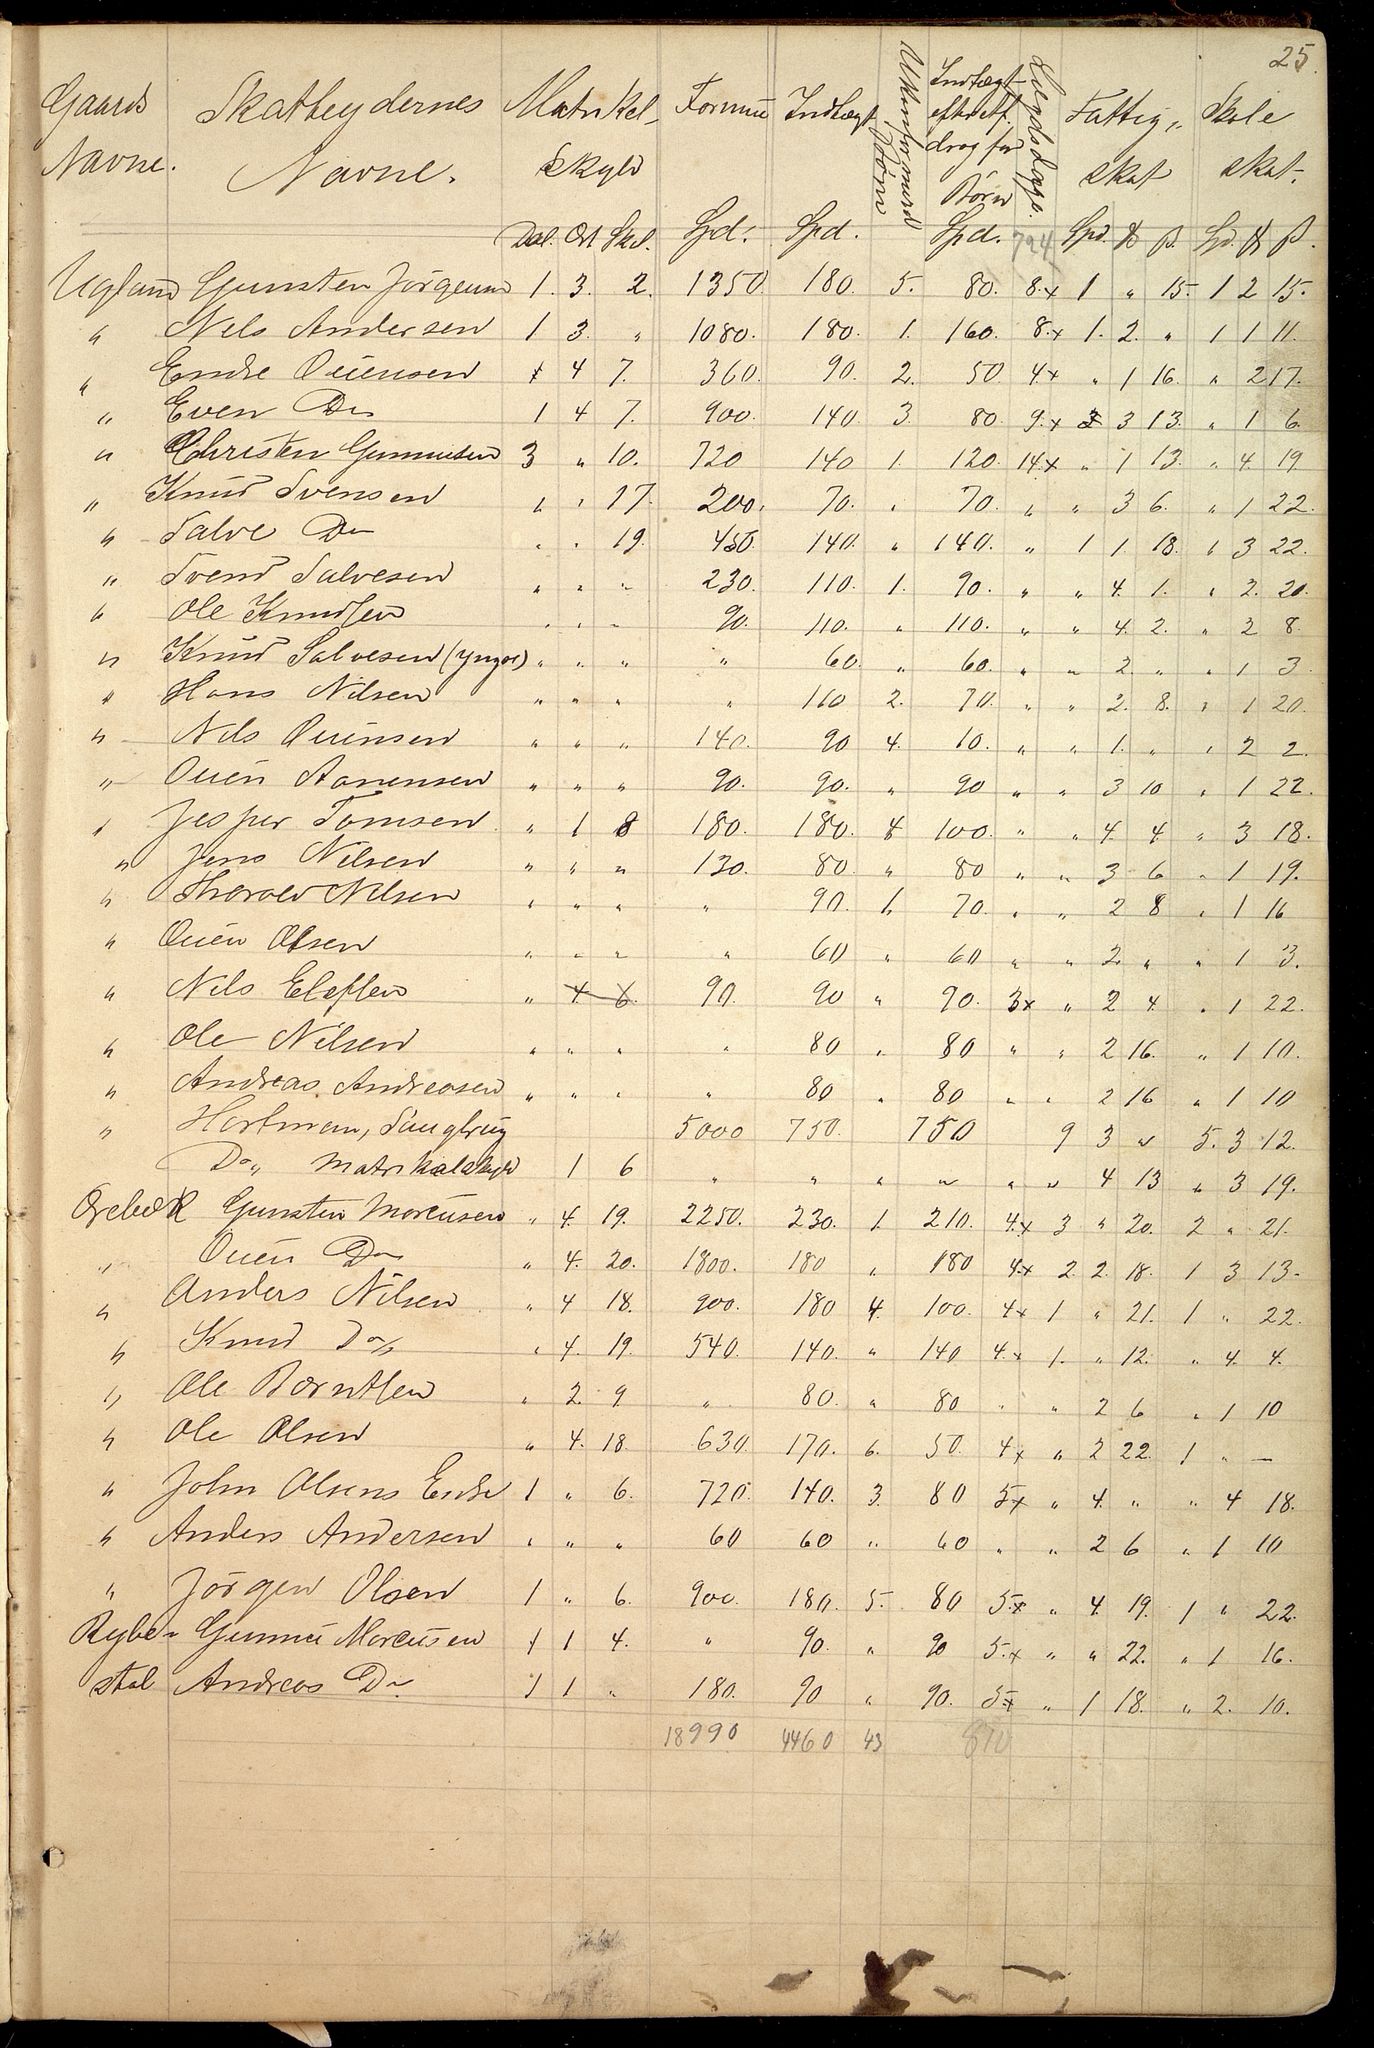 25.
Gaards Navne. Skatteydernes Navne. Matrikel-skyld Formue Indtægt Ukonfirmered Børn Indtægt efter Af-drag for Børn Lægds Dage. Fattig-skat Skole skat.
Dal. Ort Skl. Spd. Spd. Spd. 794 Spd. ß Spd. ß.
Ugland Gunsten Jørgensen 1. 3. 2. 1350 180. 5. 80. 8.x 1 " 15. 1 2 15.
" Nils Andersen 1 3. " 1080. 180. 1. 160. 8.x 1. 2. " 1 1 11.
" Endre Ouensen 4 7. 360. 90. 2. 50 4x " 1 16. " 2 17.
" Even Do 1 4 7. 900. 140. 3. 80. 9.x 3 13. " 1 6.
" Christen Gunnuesen 3 " 10. 720 140 1. 120. 14x " 1 13. " 4. 19
" Knud Svensen " " 17. 200. 70. " 70. " " 3 6. " 1 22.
" Salve Do " " 19. 450. 140. " 140. " 1 1. 18. " 3 22.
" Svend Salvesen " " " 230. 110. 1. 90. " " 4. 1. " 2. 20.
" Ole Knudsen " " " 90. 110. " 110. " " 4. 2. " 2 8.
" Knud Salvesen (yngre) " " " " 60. " 60. " " 2. " " 1 3.
" Hans Nilsen " " " " 110 2. 70. " " 2. 8. " 1 20.
" Nils Ouensen " " " 140. 90 4. 10. " " 1. " " 2 2.
" Ouen Aanensen " " " 90. 90. " 90 " " 3 10 " 1 22.
" Jesper Tomsen " 1 8 180. 180. 4 100. " " 4. 4. " 3 18.
" Jens Nilsen " " " 130. 80. " 80 " " 3 6 " 1 19.
" Tharald Nilsen " " " " 90. 1. 70. " " 2 8 " 1 16
" Ouen Olsen " " " " 60 " 60 " " 2 " " 1 3.
" Nils Eleflen " 4. 6. 90. 90 " 90. 3x " 2 4. " 1 22.
" Ole Nilsen " " " " 80 " 80 " " 2 16. " 1 10.
" Andreas Andreasen " " " " 80 " 80 " " 2 16 " 1 10
" Hartman, Saugbrug 5000 750. 750 9 3 " 5. 3 12.
Do " Matrikulskyld 1 6 " " " " " " 4 13 " 3 19.
Örebæk Gunsten Marcusen " 4. 19. 2250. 230. 1. 210. 4.x 3 " 20. 2 " 21.
" Ouen Do " 4. 20. 1800. 180 " 180 4.x 2. 2. 18. 1 3 13.
" Anders Nilsen " 4 18. 900. 180 4. 100. 4x 1 " 21. 1 " 22.
" Knud Do " 4. 19. 540. 140. " 140 4.x 1. " 12. " 4. 4.
" Ole Berntsen " 2. 9 " 80. " 80 " " 2 6 " 1 10
" Ole Olsen " 4. 18. 630. 170. 6. 50. 4x " 2 22. 1 " —
" John Olsens Enke 1 " 6. 720. 140. 3. 80 5x " 4. " " 4 18.
" Anders Andersen " " " 60 60 " 60 " " 2 6 " 1 10
" Jörgen Olsen 1 " 6. 900. 180. 5. 80 5.x " 4. 19. 1 " 22.
Rybe- Gunnue Marcusen 1 1 4. " 90. " 90 5.x " " 22. " 1 16.
støl Andreas Do 1 1 " 180. 90 " 90. 5x " 1 18. " 2. 10.
18990 4460 43 810